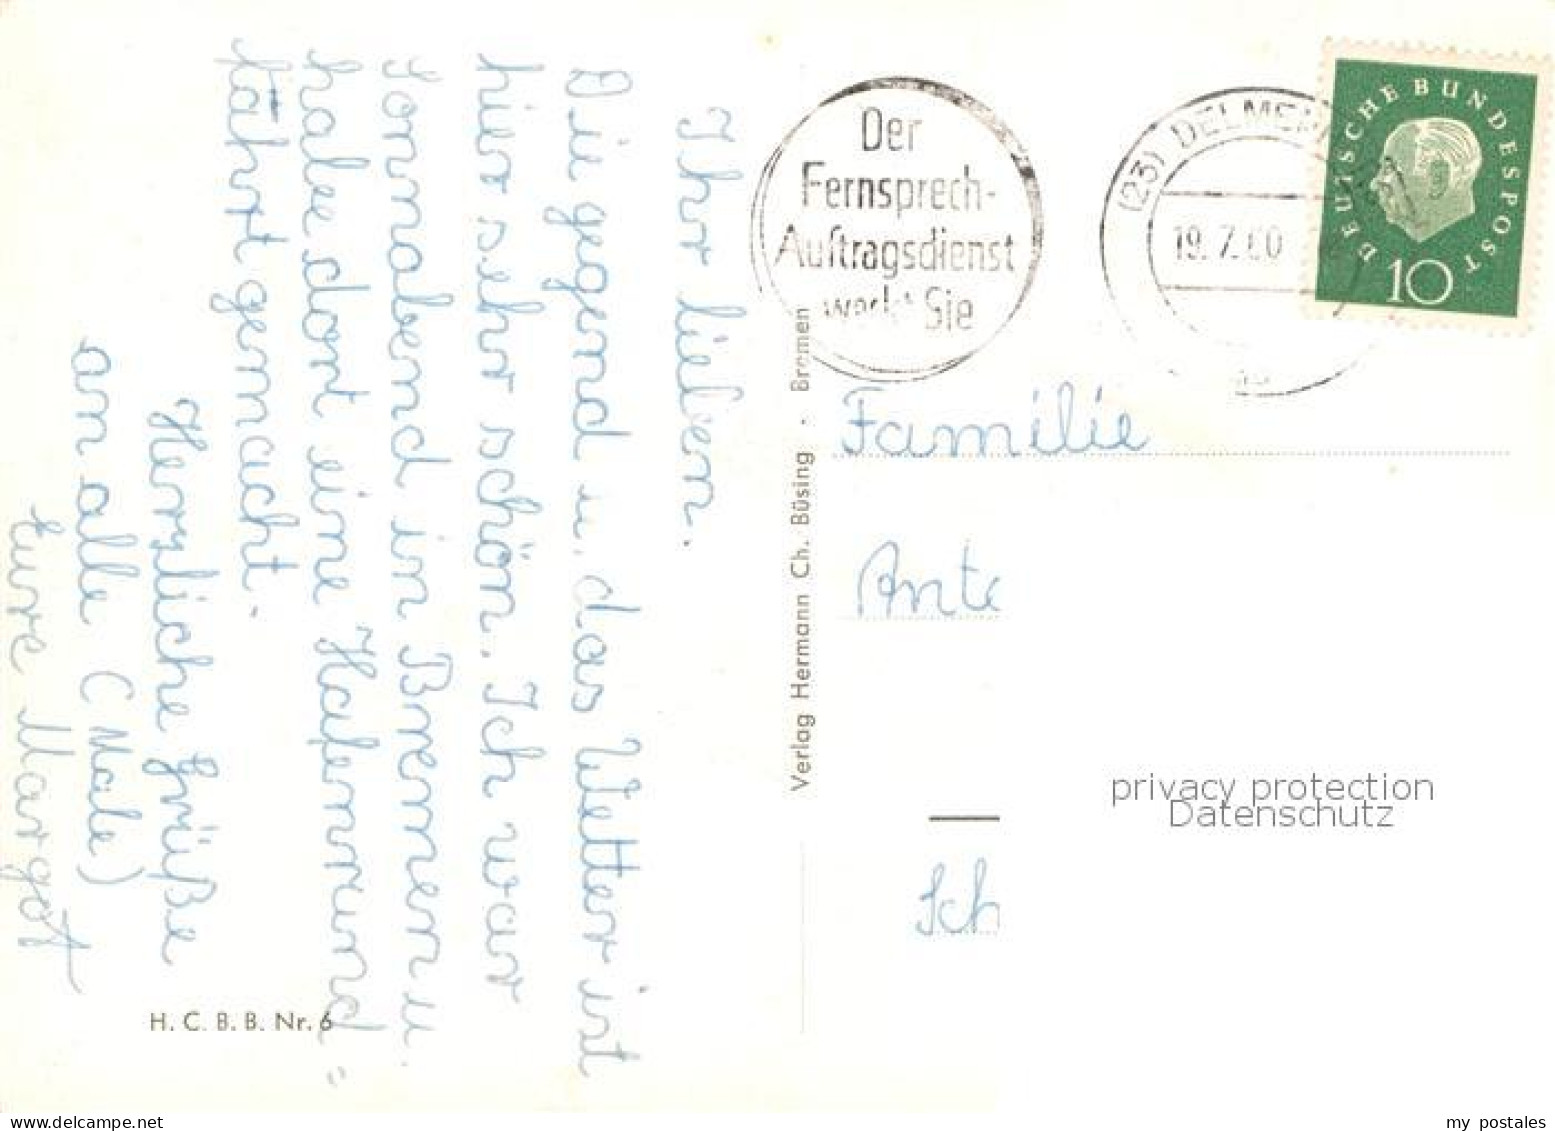 Ihr lieben.
Die gegend u. das Wetter ist
hier sehr schön. Ich war
Sonnabend in Bremen u.
habe dort eine Hafenrund=
fährt gemacht.
Herzliche Grüße
an alle (Male)
Eure Margot
H. C. B. B. Nr. 6
Verlag Hermann Ch. Büsing · Bremen
Der
Fernsprech-
Auftragsdienst
weckt Sie
(23) DELMEN
19. 7. 60
DEUTSCHE BUNDESPOST
10
Familie
Ante
Sch
privacy protection
Datenschutz
my postales